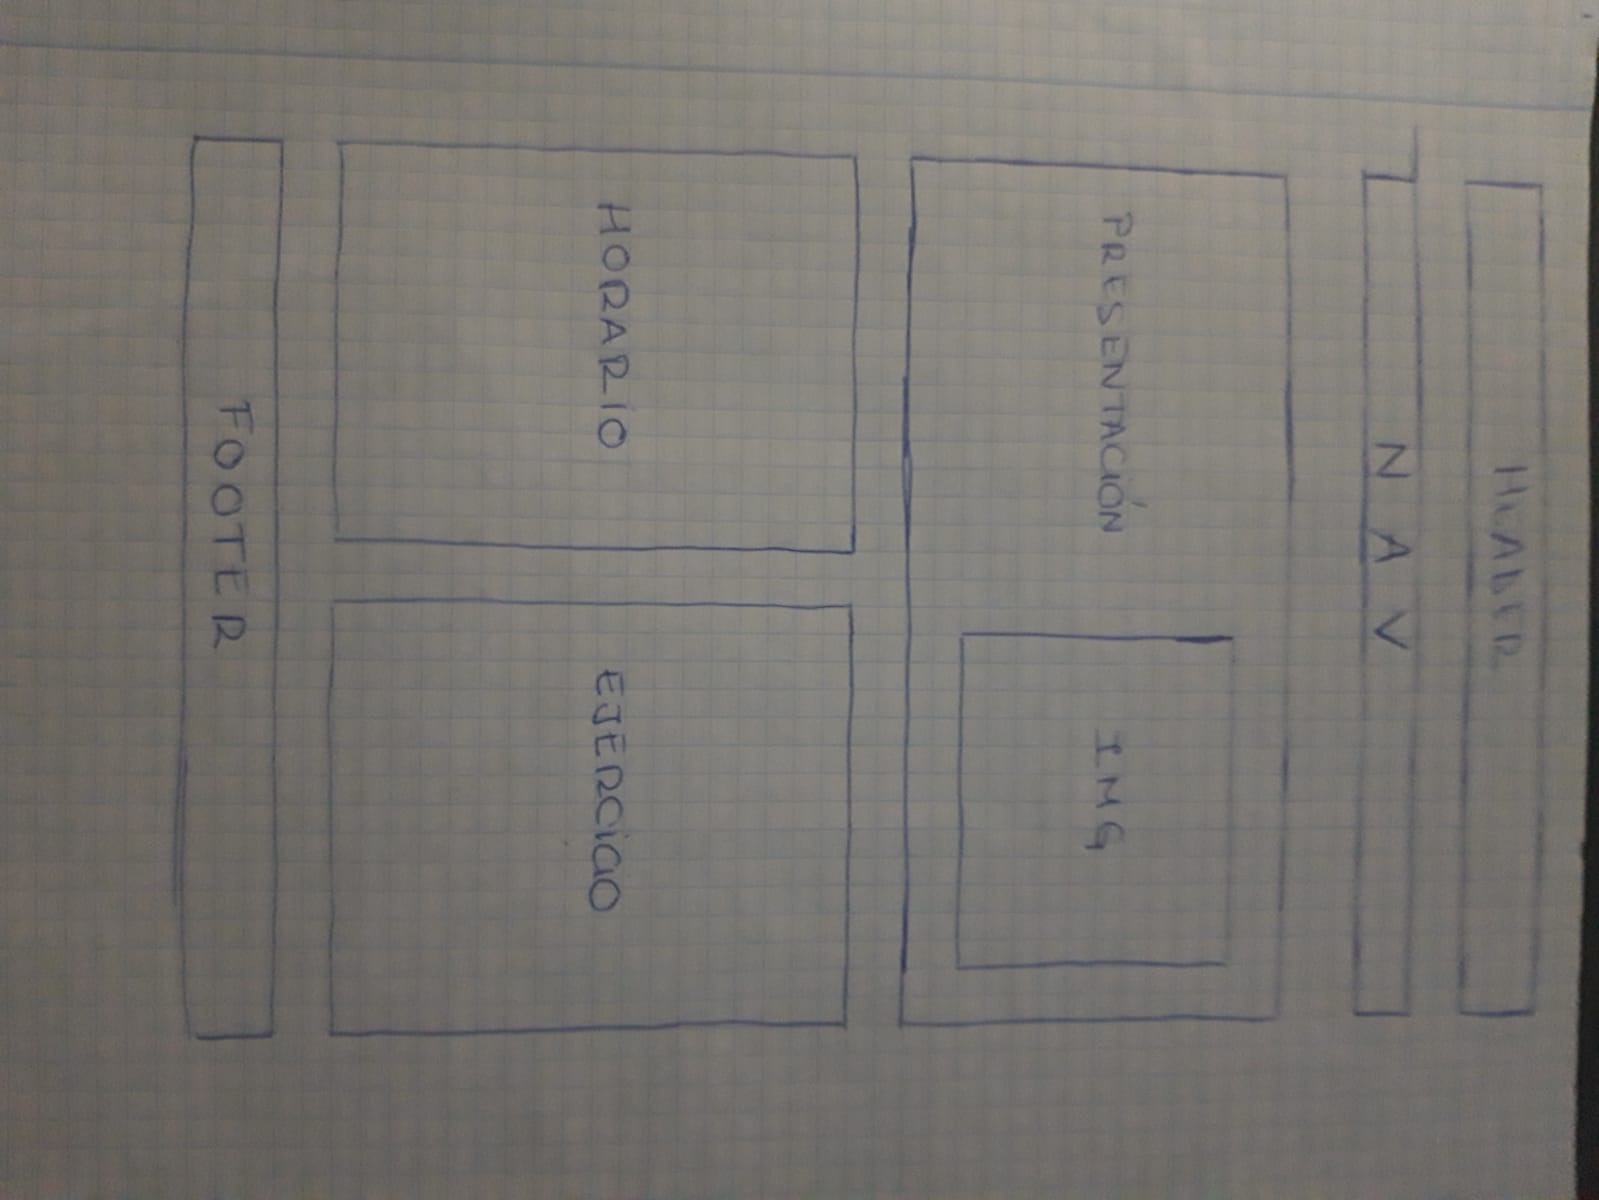 HEADER
NAV
PRESENTACIÓN
IMG
HORARIO
EJERCICIO
FOOTER